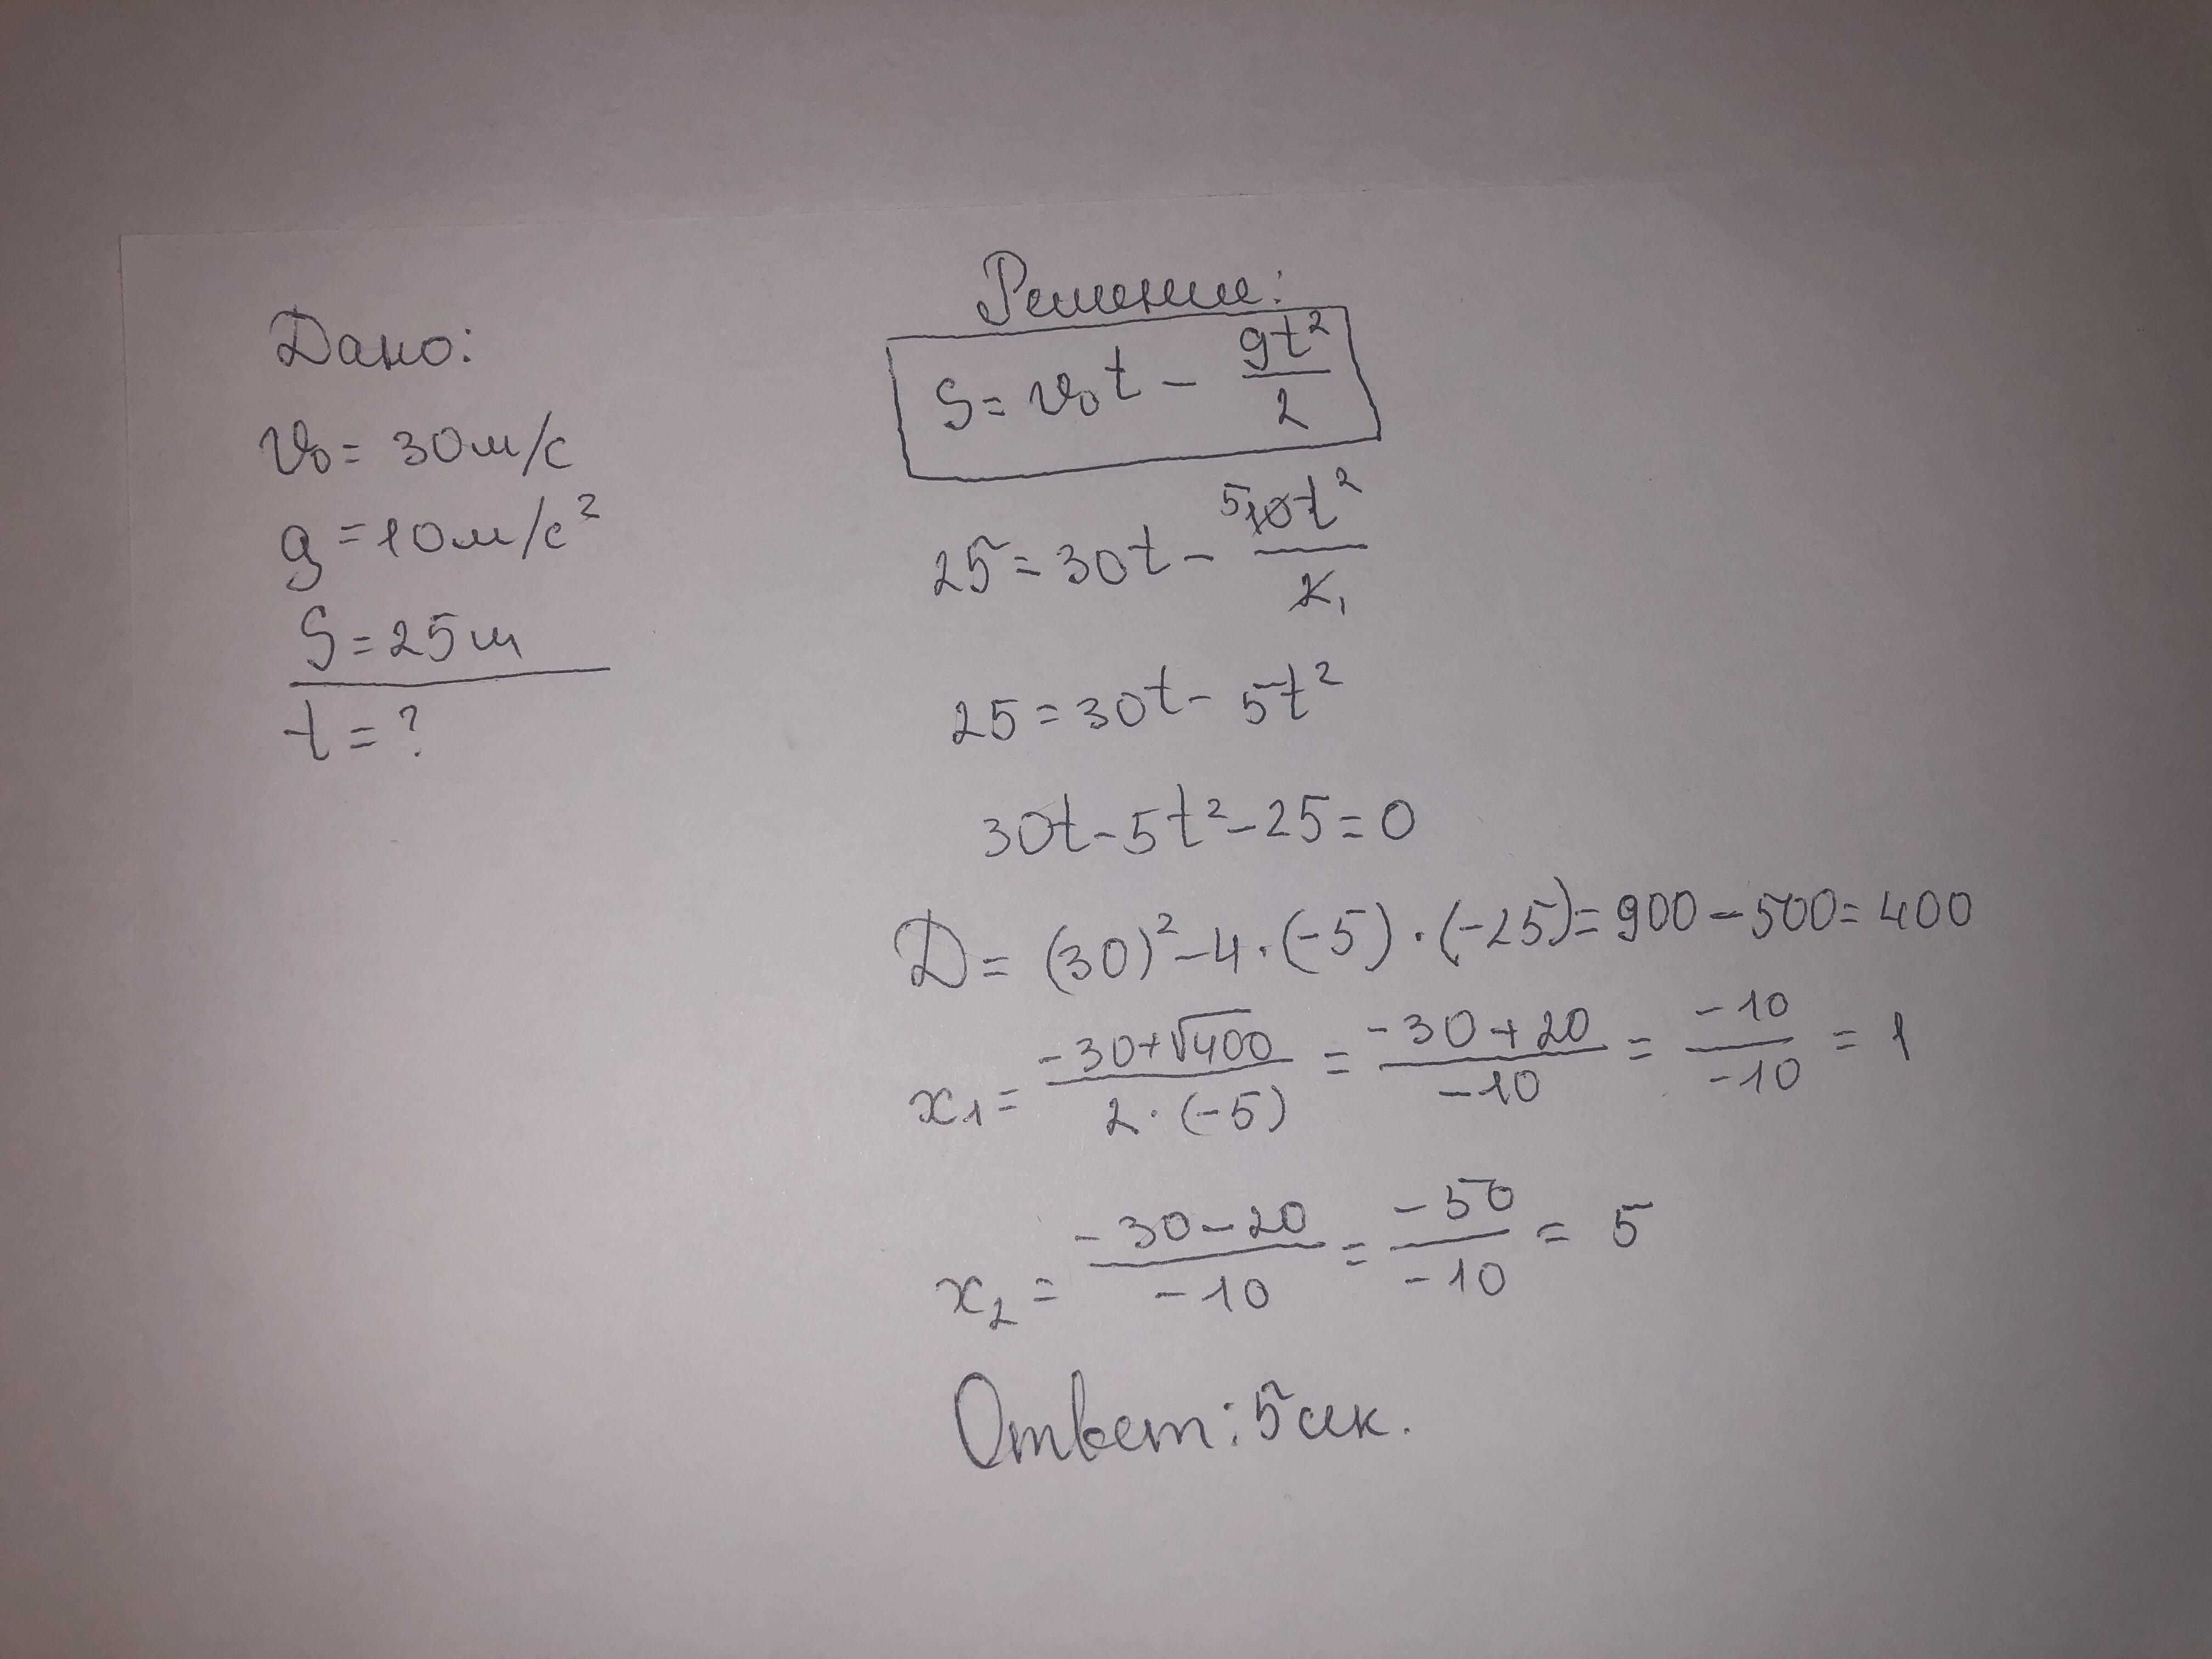 Дано:
v₀ = 30 м/с
g = 10 м/с²
S = 25 м
t = ?
Решение:
S = v₀t - gt²/2
25 = 30t - 10t²/2 (5, 1)
25 = 30t - 5t²
30t - 5t² - 25 = 0
D = (30)² - 4 · (-5) · (-25) = 900 - 500 = 400
x₁ = (-30 + √400)/(2 · (-5)) = (-30 + 20)/(-10) = (-10)/(-10) = 1
x₂ = (-30 - 20)/(-10) = (-50)/(-10) = 5
Ответ: 5 сек.